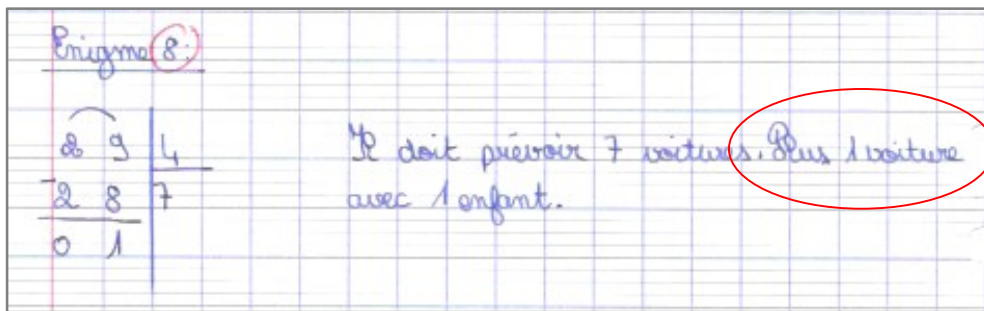 Enigme 8:
2 9 4
- 2 8 7
0 1
Il doit prévoir 7 voitures. Plus 1 voiture
avec 1 enfant.